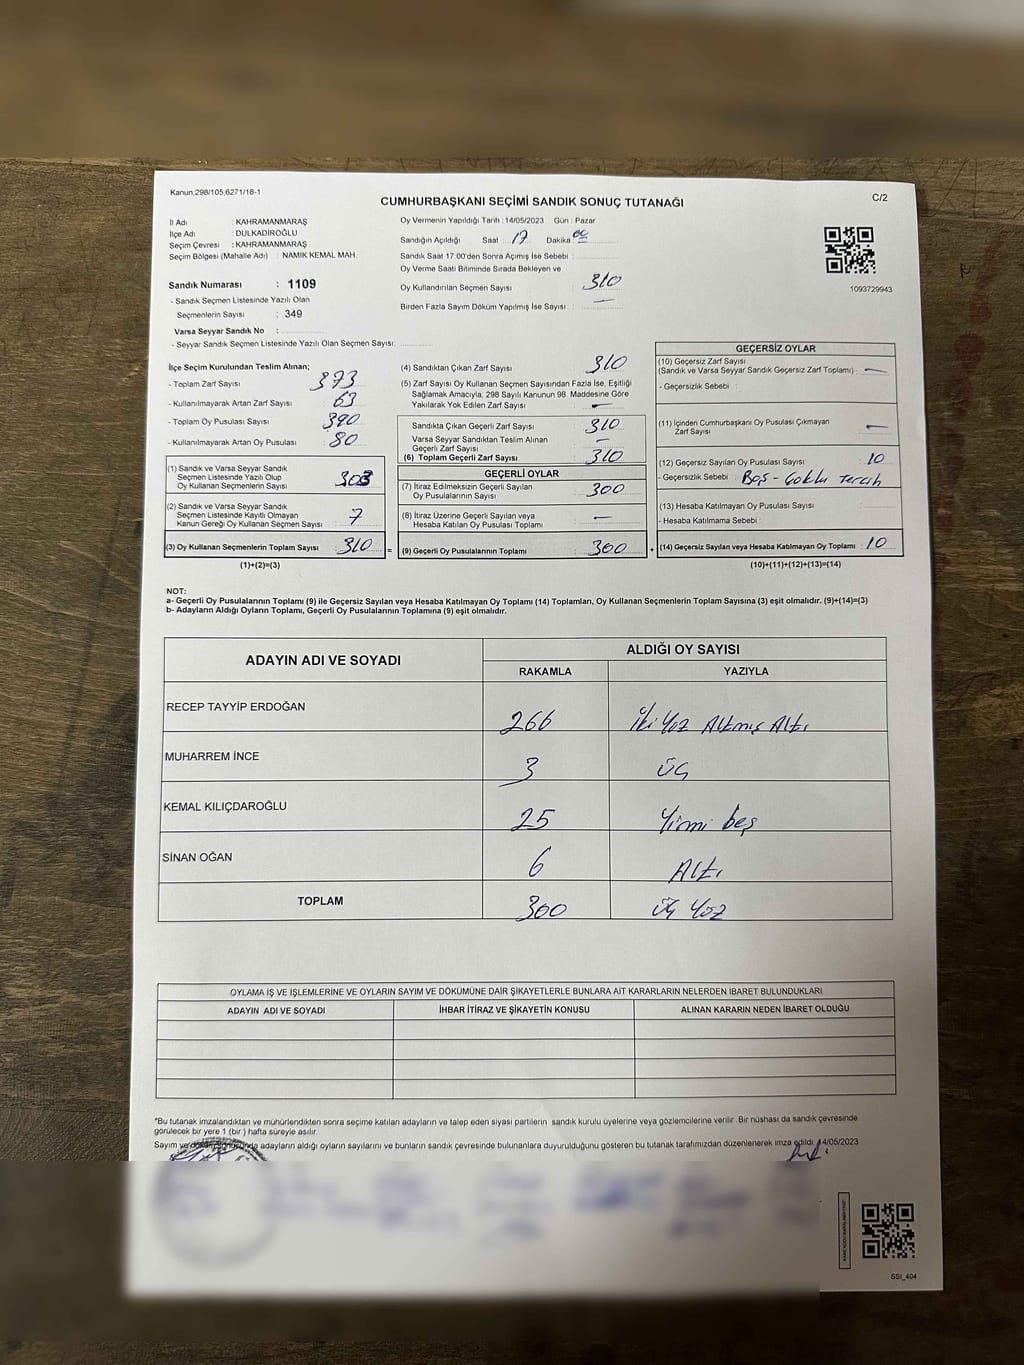 Kanun:298/105,6271/18-1
CUMHURBAŞKANI SEÇİMİ SANDIK SONUÇ TUTANAĞI
C/2
İl Adı : KAHRAMANMARAŞ
İlçe Adı : DULKADİROĞLU
Seçim Çevresi : KAHRAMANMARAŞ
Seçim Bölgesi (Mahalle Adı) : NAMIK KEMAL MAH.
Sandık Numarası : 1109
- Sandık Seçmen Listesinde Yazılı Olan
Seçmenlerin Sayısı : 349
Varsa Seyyar Sandık No :
- Seyyar Sandık Seçmen Listesinde Yazılı Olan Seçmen Sayısı:
Oy Vermenin Yapıldığı Tarih :14/05/2023 Gün : Pazar
Sandığın Açıldığı Saat : 17 Dakika : 00
Sandık Saat 17:00'den Sonra Açımış İse Sebebi :
Oy Verme Saati Bitiminde Sırada Bekleyen ve
Oy Kullandırılan Seçmen Sayısı : 310
Birden Fazla Sayım Döküm Yapılmış İse Sayısı : —
1093729943
İlçe Seçim Kurulundan Teslim Alınan;
- Toplam Zarf Sayısı : 373
- Kullanılmayarak Artan Zarf Sayısı : 63
- Toplam Oy Pusulası Sayısı : 390
- Kullanılmayarak Artan Oy Pusulası : 80
(1) Sandık ve Varsa Seyyar Sandık
Seçmen Listesinde Yazılı Olup
Oy Kullanan Seçmenlerin Sayısı : 303
(2) Sandık ve Varsa Seyyar Sandık
Seçmen Listesinde Kayıtlı Olmayan
Kanun Gereği Oy Kullanan Seçmen Sayısı : 7
(3) Oy Kullanan Seçmenlerin Toplam Sayısı : 310 =
(1)+(2)=(3)
(4) Sandıktan Çıkan Zarf Sayısı : 310
(5) Zarf Sayısı Oy Kullanan Seçmen Sayısından Fazla İse, Eşitliği
Sağlamak Amacıyla, 298 Sayılı Kanunun 98. Maddesine Göre
Yakılarak Yok Edilen Zarf Sayısı : —
Sandıkta Çıkan Geçerli Zarf Sayısı : 310
Varsa Seyyar Sandıktan Teslim Alınan
Geçerli Zarf Sayısı : —
(6) Toplam Geçerli Zarf Sayısı : 310
GEÇERLİ OYLAR
(7) İtiraz Edilmeksizin Geçerli Sayılan
Oy Pusulalarının Sayısı : 300
(8) İtiraz Üzerine Geçerli Sayılan veya
Hesaba Katılan Oy Pusulası Toplamı : —
(9) Geçerli Oy Pusulalarının Toplamı : 300 +
GEÇERSİZ OYLAR
(10) Geçersiz Zarf Sayısı
(Sandık ve Varsa Seyyar Sandık Geçersiz Zarf Toplamı) : —
- Geçersizlik Sebebi :
(11) İçinden Cumhurbaşkanı Oy Pusulası Çıkmayan
Zarf Sayısı : —
(12) Geçersiz Sayılan Oy Pusulası Sayısı : 10
- Geçersizlik Sebebi : Boş - Çoklu tercih
(13) Hesaba Katılmayan Oy Pusulası Sayısı :
- Hesaba Katılmama Sebebi :
(14) Geçersiz Sayılan veya Hesaba Katılmayan Oy Toplamı : 10
(10)+(11)+(12)+(13)=(14)
NOT:
a- Geçerli Oy Pusulalarının Toplamı (9) ile Geçersiz Sayılan veya Hesaba Katılmayan Oy Toplamı (14) Toplamları, Oy Kullanan Seçmenlerin Toplam Sayısına (3) eşit olmalıdır. (9)+(14)=(3)
b- Adayların Aldığı Oyların Toplamı, Geçerli Oy Pusulalarının Toplamına (9) eşit olmalıdır.
ADAYIN ADI VE SOYADI
ALDIĞI OY SAYISI
RAKAMLA YAZIYLA
RECEP TAYYİP ERDOĞAN 266 iki Yüz Altmış Altı
MUHARREM İNCE 3 üç
KEMAL KILIÇDAROĞLU 25 Yirmi beş
SİNAN OĞAN 6 Altı
TOPLAM 300 üç Yüz
OYLAMA İŞ VE İŞLEMLERİNE VE OYLARIN SAYIM VE DÖKÜMÜNE DAİR ŞİKAYETLERLE BUNLARA AİT KARARLARIN NELERDEN İBARET BULUNDUKLARI
ADAYIN ADI VE SOYADI İHBAR İTİRAZ VE ŞİKAYETİN KONUSU ALINAN KARARIN NEDEN İBARET OLDUĞU
*Bu tutanak imzalandıktan ve mühürlendikten sonra seçime katılan adayların ve talep eden siyasi partilerin sandık kurulu üyelerine veya gözlemcilerine verilir. Bir nüshası da sandık çevresinde
görülecek bir yere 1 (bir ) hafta süreyle asılır.
Sayım ve adayların aldığı oyların sayılarını ve bunların sandık çevresinde bulunanlara duyurulduğunu gösteren bu tutanak tarafımızdan düzenlenerek imza edildi. 14/05/2023
SSI_404